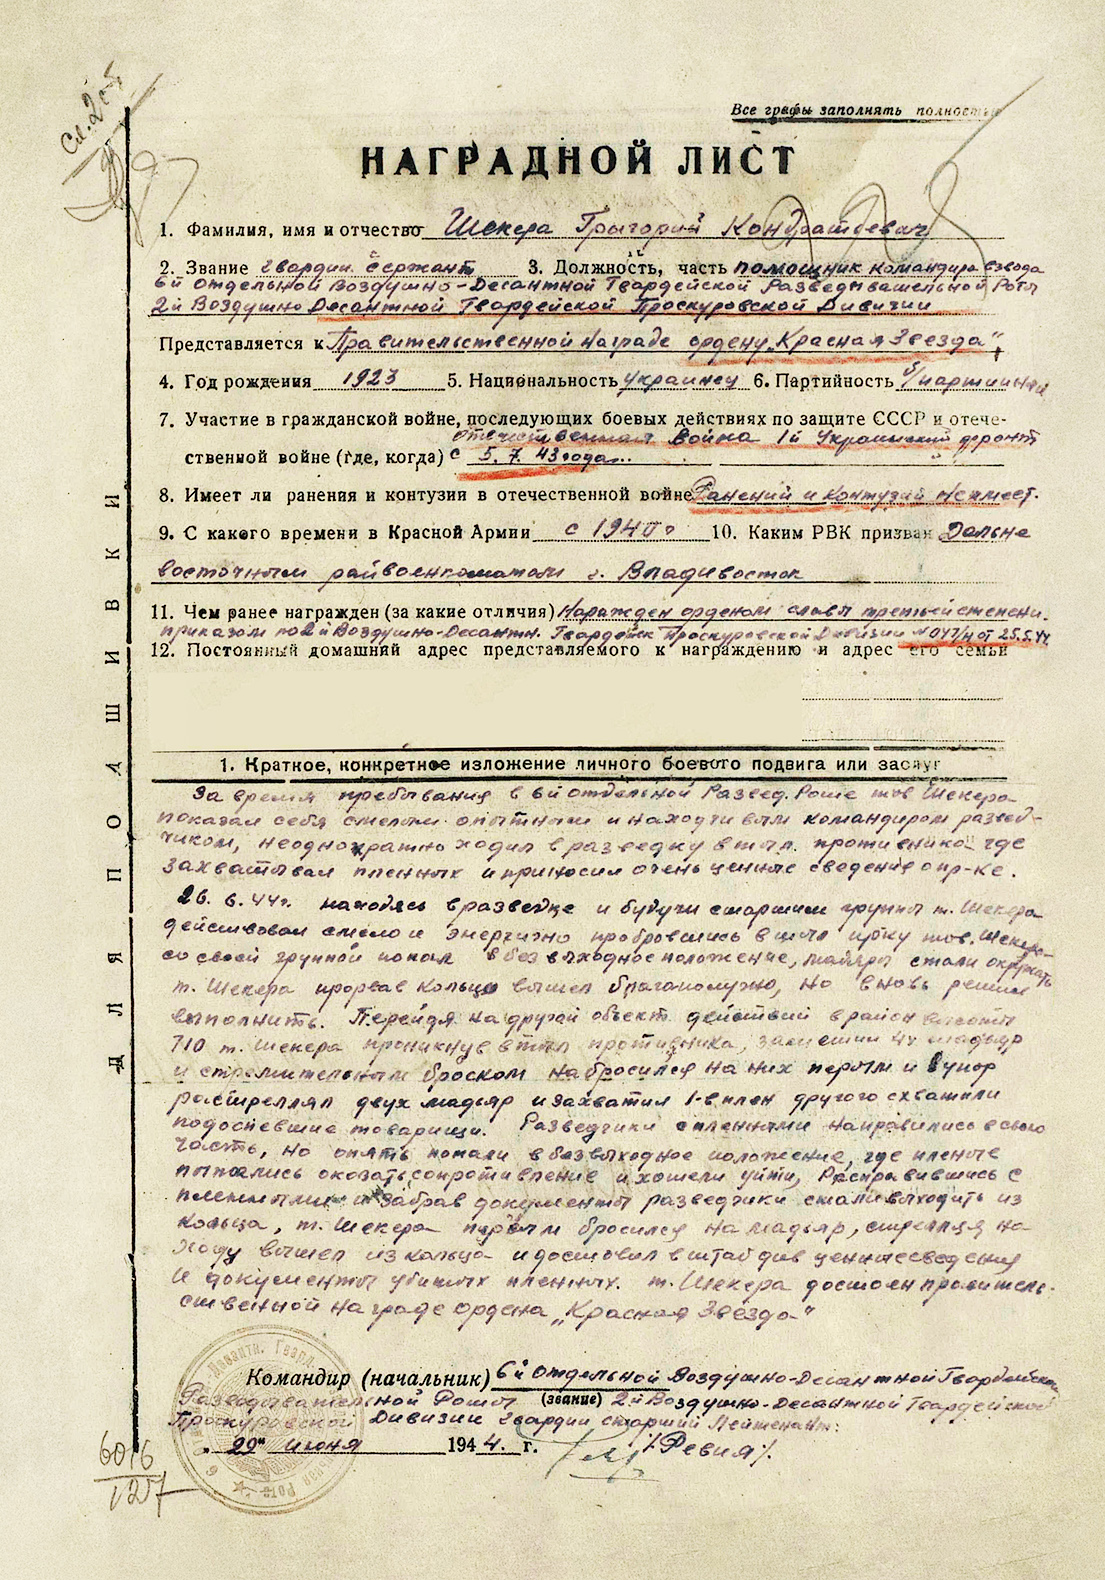 Сл. 2 ст.
Все графы заполнять полностью
НАГРАДНОЙ ЛИСТ
1. Фамилия, имя и отчество Шекера Григорий Кондратьевич
2. Звание гвардии сержант 3. Должность, часть помощник командира взвода
6й Отдельной Воздушно-Десантной Гвардейской Разведывательной Роты
2й Воздушно Десантной Гвардейской Проскуровской Дивизии
Представляется к Правительственной награде ордену „Красная Звезда"
4. Год рождения 1923 5. Национальность Украинец 6. Партийность б/партийный
7. Участие в гражданской войне, последующих боевых действиях по защите СССР и отече-
отечественная война 1й Украинский фронт
ственной войне (где, когда) с 5.7.43 года..
8. Имеет ли ранения и контузии в отечественной войне Ранений и Контузий Не имеет.
9. С какого времени в Красной Армии с 1940 г 10. Каким РВК призван Дальне
восточным райвоенкоматом г. Владивосток
11. Чем ранее награжден (за какие отличия) Награжден орденом славы третьей степени.
приказом по 2й Воздушно-Десантн. Гвардейск Проскуровской Дивизии № 047/н от 25.5.44
12. Постоянный домашний адрес представляемого к награждению и адрес его семьи
1. Краткое, конкретное изложение личного боевого подвига или заслуг
За время пребывания в 6й отдельной Развед. Роте тов Шекера
показал себя смелым опытным и находчивым командиром развед-
чиком, неоднократно ходил в разведку в тыл противника где
захватывал пленных и приносил очень ценные сведения о пр-ке.
26.6.44г. находясь в разведке и будучи старшим группы т. Шекера
действовал смело и энергично пробравшись в тыл пр-ку тов. Шекера
со своей группой попал в безвыходное положение, мадьяры стали окружать
т. Шекера прорвав кольцо вышел благополучно, но вновь решил
выполнить. Перейдя на другой объект действий в район высоты
710 т. Шекера проникнув в тыл противника, заметил 4х мадьяр
и стремительным броском набросился на них первым и в упор
расстрелял двух мадьяр и захватил 1-в плен другого схватили
подоспевшие товарищи. Разведчики с пленными направились в свою
часть, но опять попали в безвыходное положение, где пленые
пытались оказать сопротивление и хотели уйти, Расправившись с
пленными и забрав документы разведчики стали выходить из
кольца, т. Шекера первым бросился на мадьяр, стреляя на
ходу вышел из кольца и доставил в штаб див ценные сведения
и документы убитых пленных. т. Шекера достоен правитель-
ственной награде ордена „Красная Звезда"
Командир (начальник) 6й Отдельной Воздушно-Десантной Гвардейской
Разведывательной Роты (звание) 2й Воздушно-Десантной Гвардейской
Проскуровской Дивизии Гвардии старший Лейтенант:
„29" июня 1944 г. /Ревия/.
6016
127
ДЛЯ ПОДШИВКИ